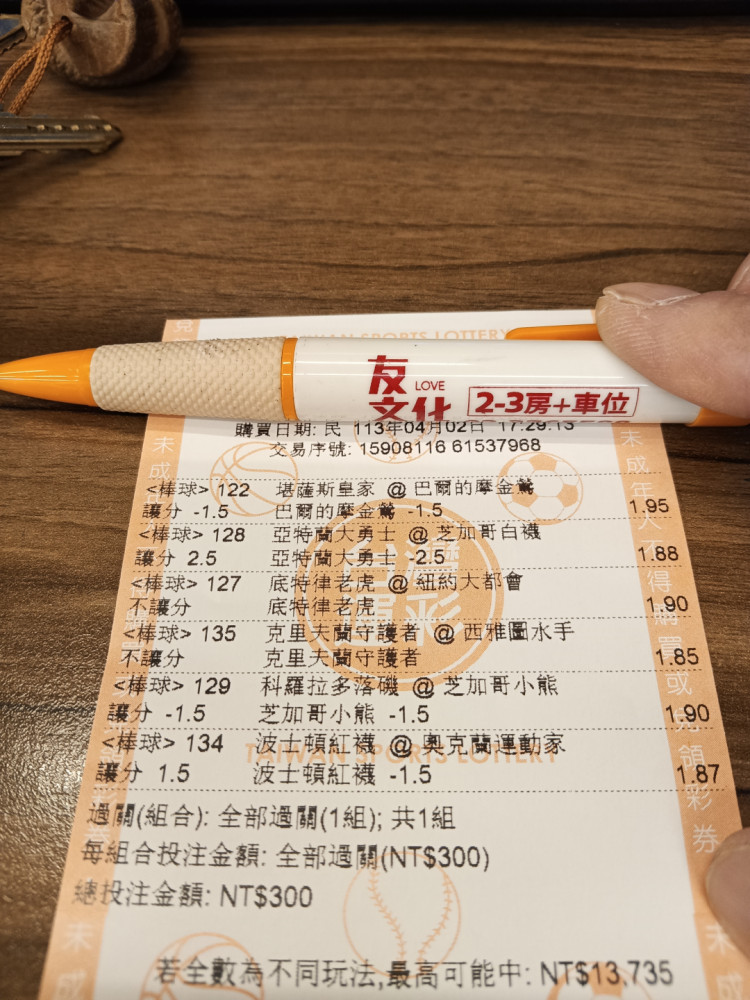 TAIWAN SPORTS LOTTERY
友
LOVE
文化
2-3房+車位
購買日期: 民 113年04月02日 17:29:13
交易序號: 15908116 61537968
<棒球> 122 堪薩斯皇家 @ 巴爾的摩金鶯
讓分 -1.5 巴爾的摩金鶯 -1.5 1.95
<棒球> 128 亞特蘭大勇士 @ 芝加哥白襪
讓分 2.5 亞特蘭大勇士 -2.5 1.88
<棒球> 127 底特律老虎 @ 紐約大都會
不讓分 底特律老虎 1.90
<棒球> 135 克里夫蘭守護者 @ 西雅圖水手
不讓分 克里夫蘭守護者 1.85
<棒球> 129 科羅拉多落磯 @ 芝加哥小熊
讓分 -1.5 芝加哥小熊 -1.5 1.90
<棒球> 134 波士頓紅襪 @ 奧克蘭運動家
讓分 1.5 波士頓紅襪 -1.5 1.87
過關(組合): 全部過關(1組); 共1組
每組合投注金額: 全部過關(NT$300)
總投注金額: NT$300
若全數為不同玩法,最高可能中: NT$13,735
台灣運彩
TAIWAN SPORTS LOTTERY
未成年人不得購買或兌領彩券
未成